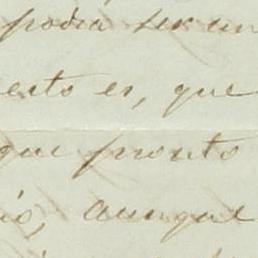 podia ser un
esto es, que
que pronto
aunque